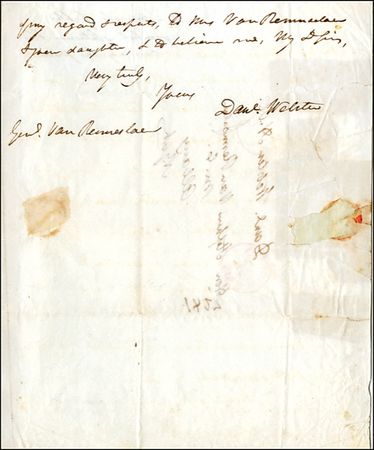 my regard & respects, to Mrs Van Rensselaer
& your daughter, & to believe me, My D Sir,
Very truly,
Yours
Danl. Webster
Genl. Van Rensselaer